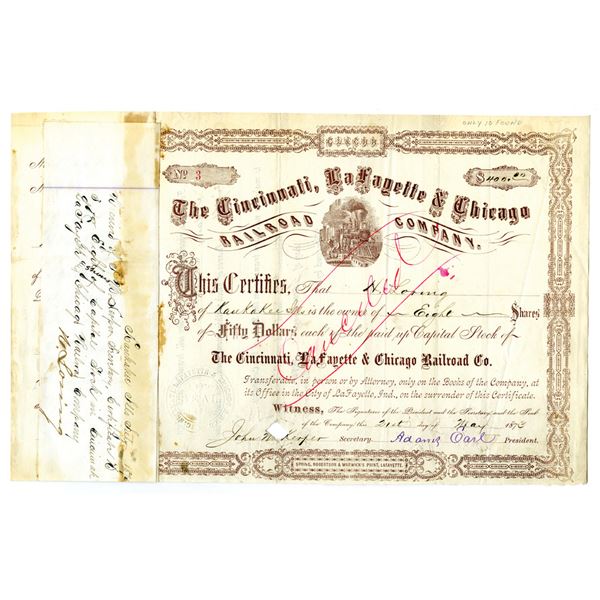 ONLY 10 FOUND
No 3
$400.00
The Cincinnati, LaFayette & Chicago
RAILROAD COMPANY.
This Certifies, That W Loring
of Kankakee Ills is the owner of Eight Shares
of Fifty Dollars each of the paid up Capital Stock of
The Cincinnati, LaFayette & Chicago Railroad Co.
Transferable, in person or by Attorney, only on the Books of the Company, at
its Office in the City of LaFayette, Ind., on the surrender of this Certificate.
Witness, The Signatures of the President and the Secretary and the Seal
of the Company this 21st day of May 1873
Secretary. Adams Earl President.
Cancelled
SPRING, ROBERTSON & WARWICK'S PRINT, LAFAYETTE.
Kankakee Ills
Capital Stock in Cincinnati
LaFayette & Chicago Railroad Company
W Loring